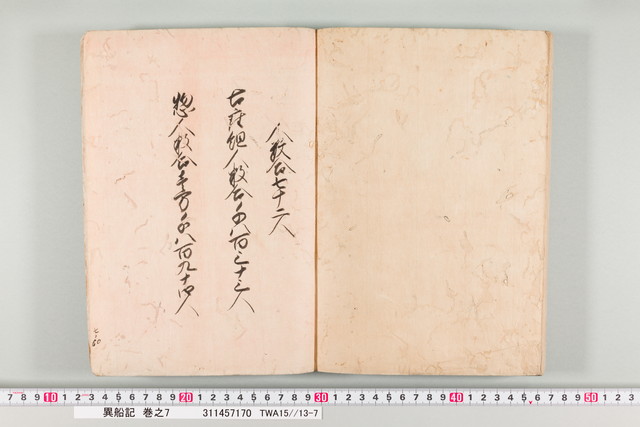 人数合七十二人
右産組人数合千八百三十三人
惣人数合壱万千八百九十四人
C-60
7 8 9 10 1 2 3 4 5 6 7 8 9 20 1 2 3 4 5 6 7 8 9 30 1 2 3 4 5 6 7 8 9 40 1 2 3 4 5 6 7 8 9 50 1 2 3
異船記 巻之7 311457170 TWA15//13-7